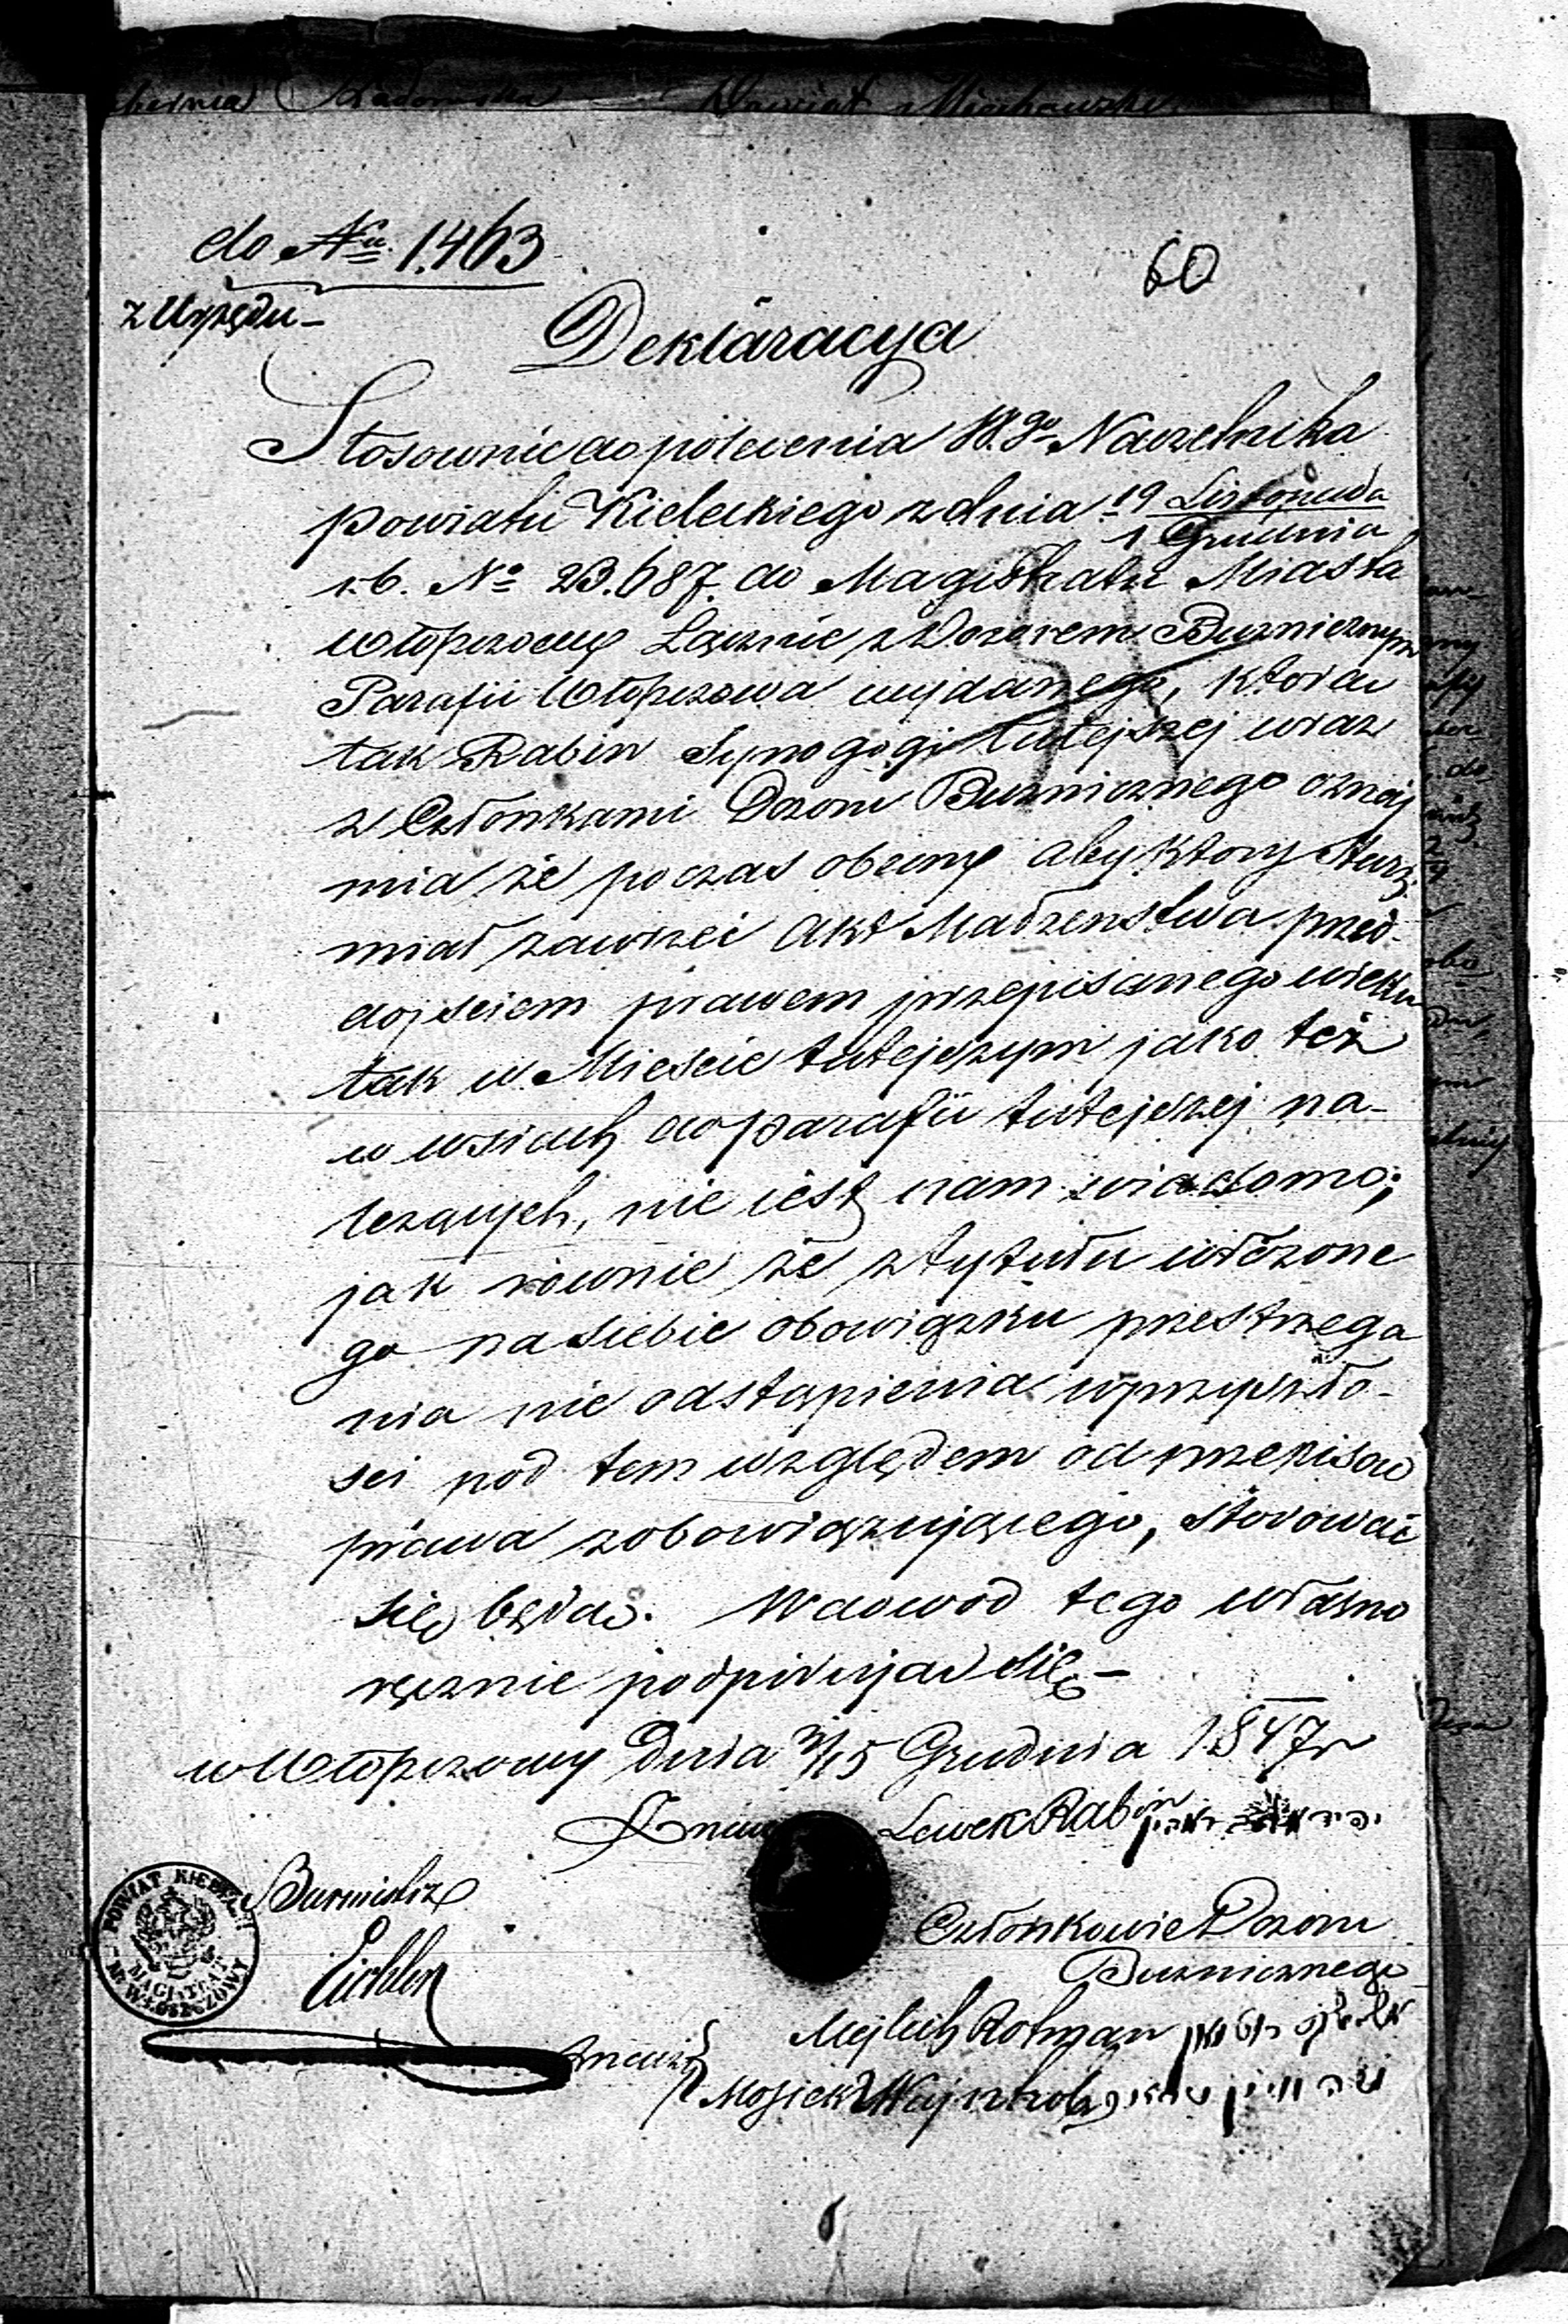 do Nru 1.463
60
z Urzędu
Deklaracya
Stosownie do polecenia W.go Naczelnika
powiatu Kieleckiego z dnia 19 Listopada
1 Grudnia
r.b. No 23.687. do Magistratu Miasta
Włoszczowy Łącznie z Dozorem Buznicznym
Parafii Włoszczowa wydanego, która
tak Rabin Synogogi tutejszej wraz
z Członkami Dozoru Buznicznego oznaj
mia że poczas obecny aby który
miał zawrzeć Akt Madzenstwa przed
dojsciem prawem przepisanego wieku
tak w Miescie tutejszym jako też
w wsiach do parafii tutejszej na-
leżących, nie iest nam wiadomo;
jak rownie że z tytułu włożone
go na siebie obowiązku przestrzega
nia nie odstąpienia w przyszło-
sci pod tem względem od przepisow
prawa zobowiązującego, stosować
się będą. Wdowod tego własno
ręcznie podpisują się –
w Włoszczowy Dnia 3/15 Grudnia 1847 r
Lewek Rabin
Burmistrz
POWIAT KIELECKI
MAGISTRAT
M. WŁOSZCZOWY
Członkowie Dozoru
Buznicznego
Mejlich Rotman
Mosiek Wajntrob